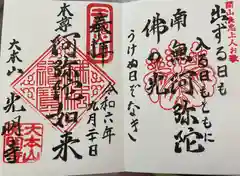 開山良忠上人お歌
出る日も
入る日もともに
南無阿弥陀
佛の光
うけぬ日ぞなき
奉拝
令和六年九月二十日
本尊
阿弥陀如来
大本山
光明寺
大本山
光明寺